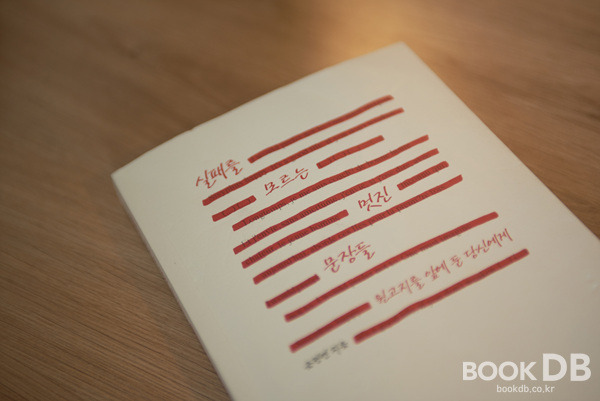 실패를
모르는
멋진
문장들
원고지를 앞에 둔 당신에게
금정연 지음
BOOK DB
bookdb.co.kr